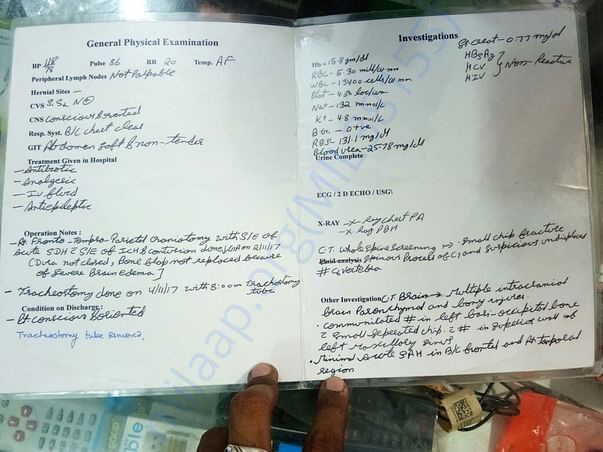 General Physical Examination
BP 118/78 Pulse 86 RR 20 Temp. AF
Peripheral Lymph Nodes Not Palpable
Hernial Sites —
CVS S1S2 N
CNS Conscious & oriented
Resp. Syst. B/L chest clear
GIT Abdomen soft & non-tender
Treatment Given in Hospital
- Antibiotic
- Analgesic
- IV fluid
- Antiepileptic
Operation Notes :
- Rt Fronto-Tempro-Parietal craniotomy with S/E of
Acute SDH c S/E of ICH & contusion done/GA on 2/11/17
[Dura not closed, Bone flap not replaced because
of severe Brain edema]
- Tracheostomy done on 4/11/17 with 8.0 mm Tracheostomy
tube
Condition on Discharge :
- Pt conscious & oriented
Tracheostomy tube Removed,
Investigations
Hb - 15.8 gm/dl
RBC - 5.30 mill/cu mm
WBC - 13400 cells/cu mm
Plat - 4.80 lac/cu mm
Na+ - 132 mmol/L
K+ - 4.8 mmol/L
B.G. - O +ve
RBS - 131.1 mg/dl
Blood urea - 25.78 mg/dl
Sr creat - 0.77 mg/dl
HBsAg
HCV
HIV
Non-Reactive
Urine Complete
ECG / 2 D ECHO / USG\
X-RAY - X-Ray chest PA
- X-Ray PBH
C.T. Whole Spine Screening → Small chip fracture
Fluid analysis Spinous Process of C7 and suspicious undisplaced
# C6 vertebra
Other Investigation C.T Brain → Multiple intracranial
Brain Parenchymal and bony injuries.
• comminuted # in left basi-occipital bone
c small seperated chip. c # in superior wall of
left maxillary sinus
• Minimal Acute SAH in B/L frontal and Rt temporal
region